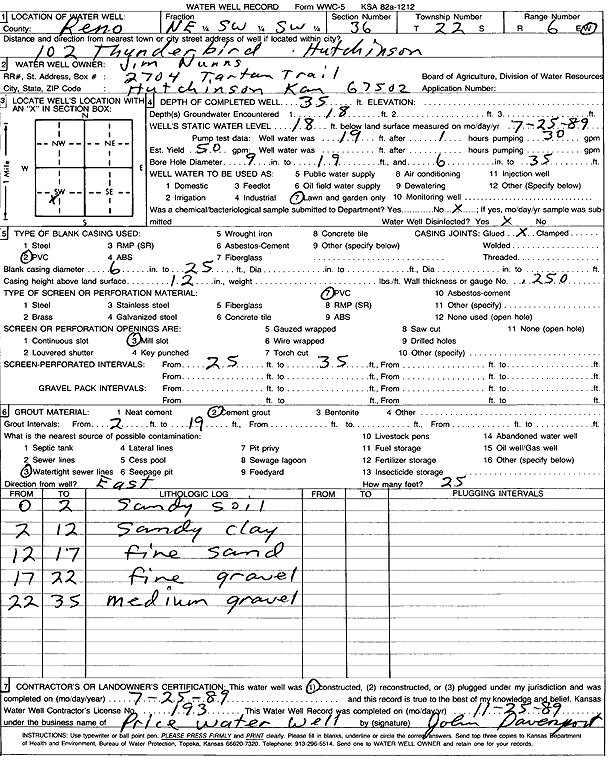 WATER WELL RECORD Form WWC-5 KSA 82a-1212
1 LOCATION OF WATER WELL: Fraction Section Number Township Number Range Number
County: Reno NE ¼ SW ¼ SW ¼ 36 T 22 S R 6 E/W
Distance and direction from nearest town or city street address of well if located within city?
102 Thunderbird - Hutchinson
2 WATER WELL OWNER: Jim Nunns
RR#, St. Address, Box # : 2704 Tartan Trail Board of Agriculture, Division of Water Resources
City, State, ZIP Code : Hutchinson Kan 67502 Application Number:
3 LOCATE WELL'S LOCATION WITH AN "X" IN SECTION BOX:
N
NW NE
W E
SW SE
X
S
1 Mile
4 DEPTH OF COMPLETED WELL 35 ft. ELEVATION:
Depth(s) Groundwater Encountered 1. 18 ft. 2. ft. 3. ft.
WELL'S STATIC WATER LEVEL 18 ft. below land surface measured on mo/day/yr 7-25-89
Pump test data: Well water was 19 ft. after 1 hours pumping 30 gpm
Est. Yield 50 gpm: Well water was ft. after hours pumping gpm
Bore Hole Diameter 9 in. to 19 ft., and 6 in. to 35 ft.
WELL WATER TO BE USED AS: 5 Public water supply 8 Air conditioning 11 Injection well
1 Domestic 3 Feedlot 6 Oil field water supply 9 Dewatering 12 Other (Specify below)
2 Irrigation 4 Industrial 7 Lawn and garden only 10 Monitoring well
Was a chemical/bacteriological sample submitted to Department? Yes No X; If yes, mo/day/yr sample was submitted
Water Well Disinfected? Yes X No
5 TYPE OF BLANK CASING USED: 5 Wrought iron 8 Concrete tile CASING JOINTS: Glued X Clamped
1 Steel 3 RMP (SR) 6 Asbestos-Cement 9 Other (specify below) Welded
2 PVC 4 ABS 7 Fiberglass Threaded
Blank casing diameter 6 in. to 25 ft., Dia in. to ft., Dia in. to ft.
Casing height above land surface 12 in., weight lbs./ft. Wall thickness or gauge No. .250
TYPE OF SCREEN OR PERFORATION MATERIAL: 7 PVC 10 Asbestos-cement
1 Steel 3 Stainless steel 5 Fiberglass 8 RMP (SR) 11 Other (specify)
2 Brass 4 Galvanized steel 6 Concrete tile 9 ABS 12 None used (open hole)
SCREEN OR PERFORATION OPENINGS ARE: 5 Gauzed wrapped 8 Saw cut 11 None (open hole)
1 Continuous slot 3 Mill slot 6 Wire wrapped 9 Drilled holes
2 Louvered shutter 4 Key punched 7 Torch cut 10 Other (specify)
SCREEN-PERFORATED INTERVALS: From 25 ft. to 35 ft., From ft. to ft.
From ft. to ft., From ft. to ft.
GRAVEL PACK INTERVALS: From ft. to ft., From ft. to ft.
From ft. to ft., From ft. to ft.
6 GROUT MATERIAL: 1 Neat cement 2 Cement grout 3 Bentonite 4 Other
Grout Intervals: From 2 ft. to 19 ft., From ft. to ft., From ft. to ft.
What is the nearest source of possible contamination: 10 Livestock pens 14 Abandoned water well
1 Septic tank 4 Lateral lines 7 Pit privy 11 Fuel storage 15 Oil well/Gas well
2 Sewer lines 5 Cess pool 8 Sewage lagoon 12 Fertilizer storage 16 Other (specify below)
3 Watertight sewer lines 6 Seepage pit 9 Feedyard 13 Insecticide storage
Direction from well? East How many feet? 25
FROM TO LITHOLOGIC LOG FROM TO PLUGGING INTERVALS
0 2 Sandy soil
2 12 Sandy clay
12 17 fine sand
17 22 fine gravel
22 35 medium gravel
7 CONTRACTOR'S OR LANDOWNER'S CERTIFICATION: This water well was (1) constructed, (2) reconstructed, or (3) plugged under my jurisdiction and was
completed on (mo/day/year) 7-25-89 and this record is true to the best of my knowledge and belief. Kansas
Water Well Contractor's License No. 193 This Water Well Record was completed on (mo/day/yr) 11-25-89
under the business name of Price Water Well by (signature) John Davenport
INSTRUCTIONS: Use typewriter or ball point pen. PLEASE PRESS FIRMLY and PRINT clearly. Please fill in blanks, underline or circle the correct answers. Send top three copies to Kansas Department
of Health and Environment, Bureau of Water Protection, Topeka, Kansas 66620-7320. Telephone: 913-296-5514. Send one to WATER WELL OWNER and retain one for your records.